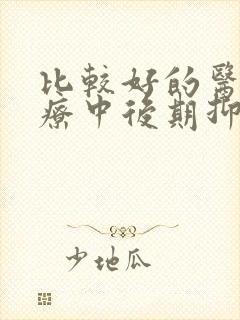 比較好的醫
療中後期
少地瓜